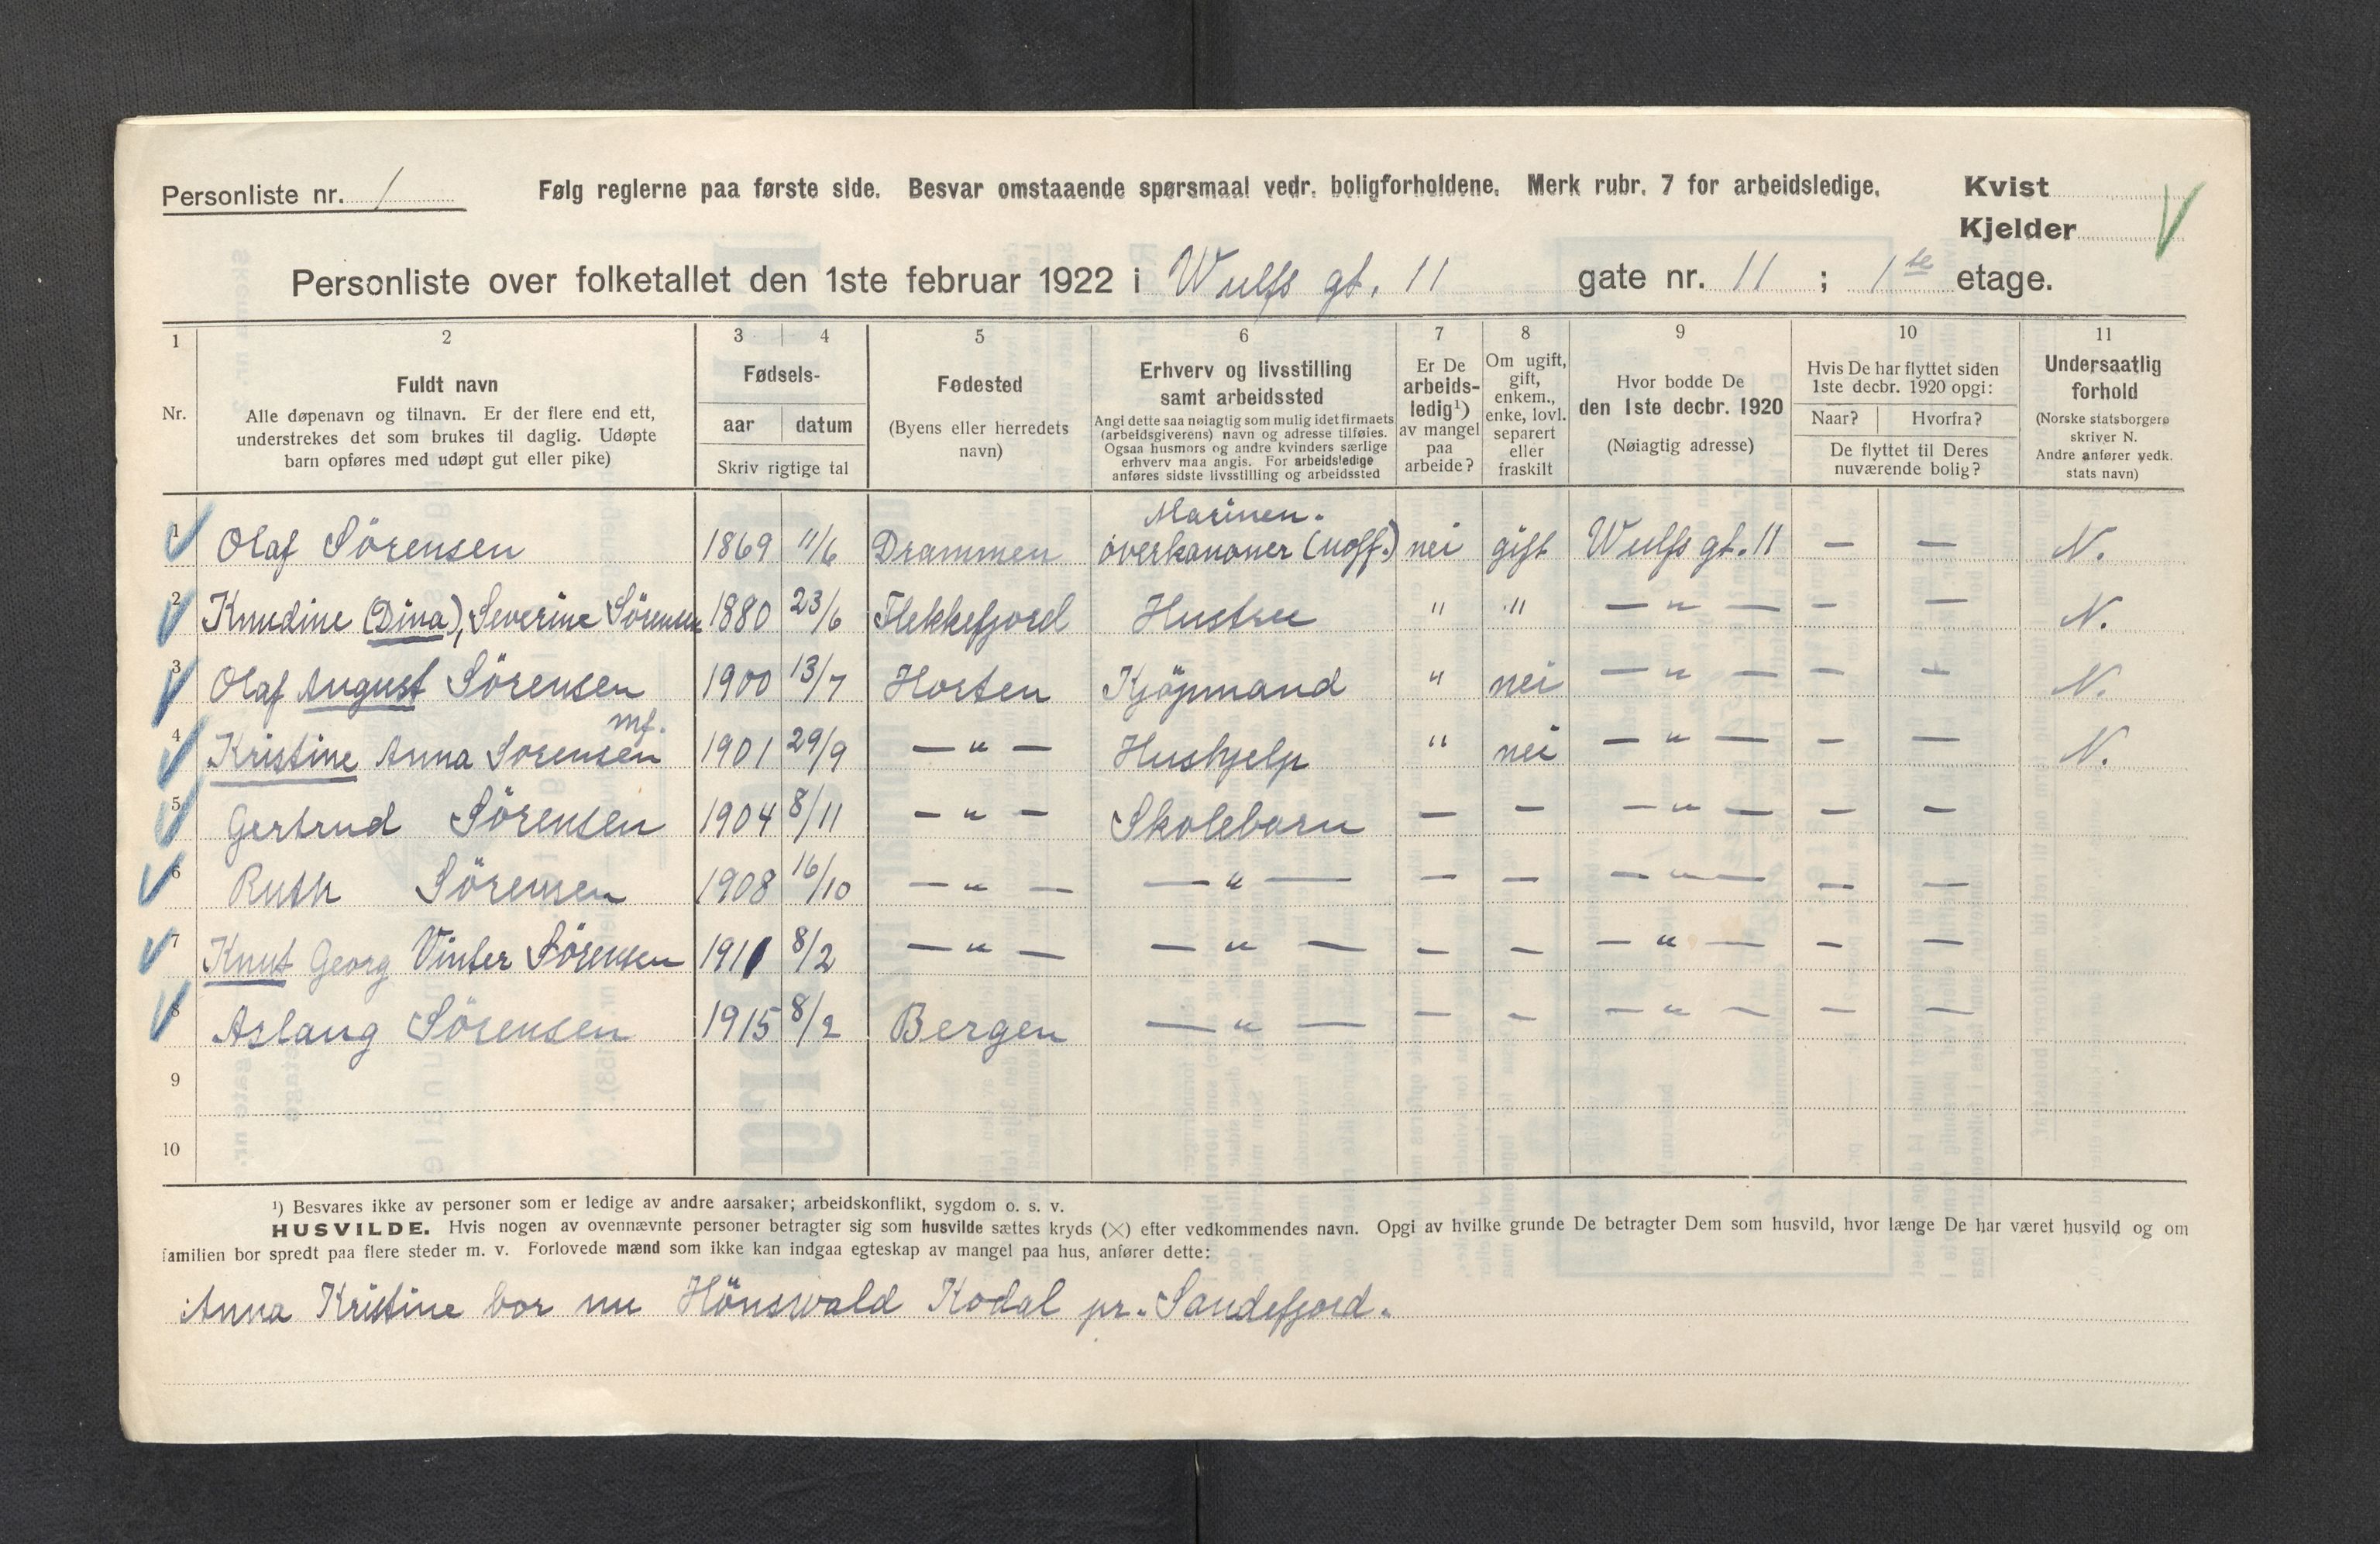 Personliste nr. 1
Følg reglerne paa første side. Besvar omstaaende spørsmaal vedr. boligforholdene. Merk rubr. 7 for arbeidsledige.
Kvist
Kjelder
Personliste over folketallet den 1ste februar 1922 i Wulfs gt. 11 gate nr. 11 ; 1ste etage.
1 2 3 4 5 6 7 8 9 10 11
Nr.
Fuldt navn
Alle døpenavn og tilnavn. Er der flere end ett,
understrekes det som brukes til daglig. Udøpte
barn opføres med udøpt gut eller pike)
Fødsels-
aar datum
Skriv rigtige tal
Fødested
(Byens eller herredets
navn)
Erhverv og livsstilling
samt arbeidssted
Angi dette saa nøiagtig som mulig idet firmaets
(arbeidsgiverens) navn og adresse tilføies.
Ogsaa husmors og andre kvinders særlige
erhverv maa angis. For arbeidsledige
anføres sidste livsstilling og arbeidssted
Er De
arbeids-
ledig¹)
av mangel
paa
arbeide?
Om ugift,
gift,
enkem.,
enke, lovl.
separert
eller
fraskilt
Hvor bodde De
den 1ste decbr. 1920
(Nøiagtig adresse)
Hvis De har flyttet siden
1ste decbr. 1920 opgi:
Naar? Hvorfra?
De flyttet til Deres
nuværende bolig?
Undersaatlig
forhold
(Norske statsborgere
skriver N.
Andre anfører vedk.
stats navn)
Marinen.
1 Olaf Sörensen 1869 11/6 Drammen overkanoner (uoff.) nei gift Wulfs gt. 11 — — N.
2 Knudine (Dina), Severine Sörensen 1880 23/6 Flekkefjord Hustru " " — " — — — N.
3 Olaf August Sörensen 1900 13/7 Horten Kjöpmand " nei — " — — — N.
mf.
4 Kristine Anna Sorensen 1901 29/9 — " — Hushjelp " nei — " — — — N.
5 Gertrud Sörensen 1904 8/11 — " — Skolebarn — — — " — — —
6 Ruth Sörensen 1908 16/10 — " — — " — — — — " — — —
7 Knut Georg Vinter Sörensen 1911 8/2 — " — — " — — — — " — — —
8 Aslaug Sörensen 1915 8/2 Bergen — " — — — — " — — —
9
10
¹) Besvares ikke av personer som er ledige av andre aarsaker; arbeidskonflikt, sygdom o. s. v.
HUSVILDE. Hvis nogen av ovennævnte personer betragter sig som husvilde sættes kryds (×) efter vedkommendes navn. Opgi av hvilke grunde De betragter Dem som husvild, hvor længe De har været husvild og om
familien bor spredt paa flere steder m. v. Forlovede mænd som ikke kan indgaa egteskap av mangel paa hus, anfører dette:
Anna Kristine bor nu Hönswald Kodal pr. Sandefjord.